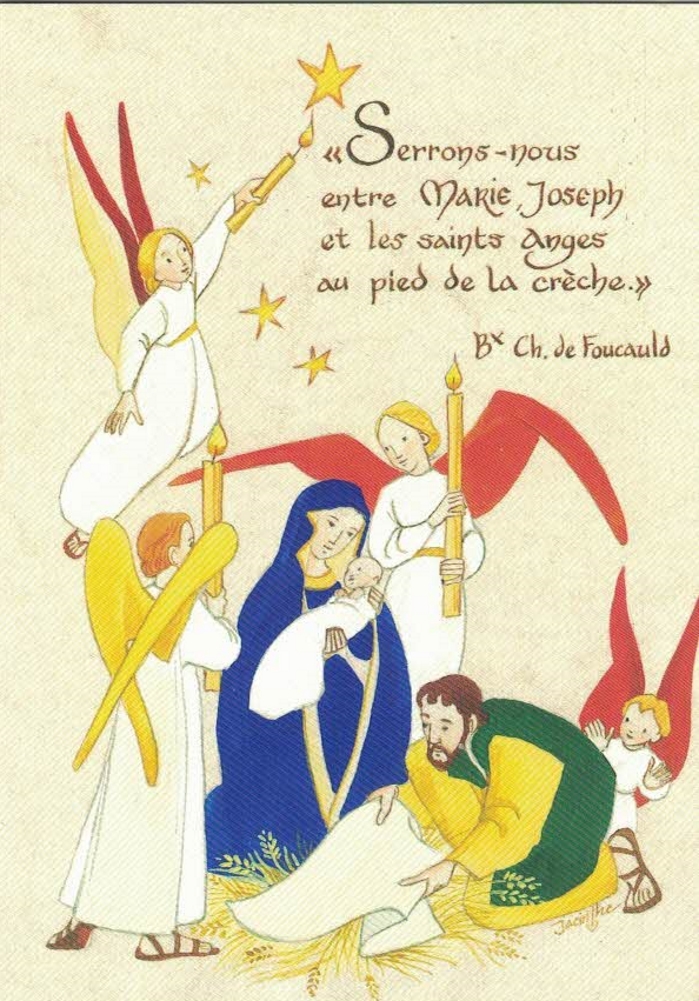 «Serrons-nous
entre MARIE, Joseph
et les saints Anges
au pied de la crèche.»
Bx Ch. de Foucauld
Jacinthe